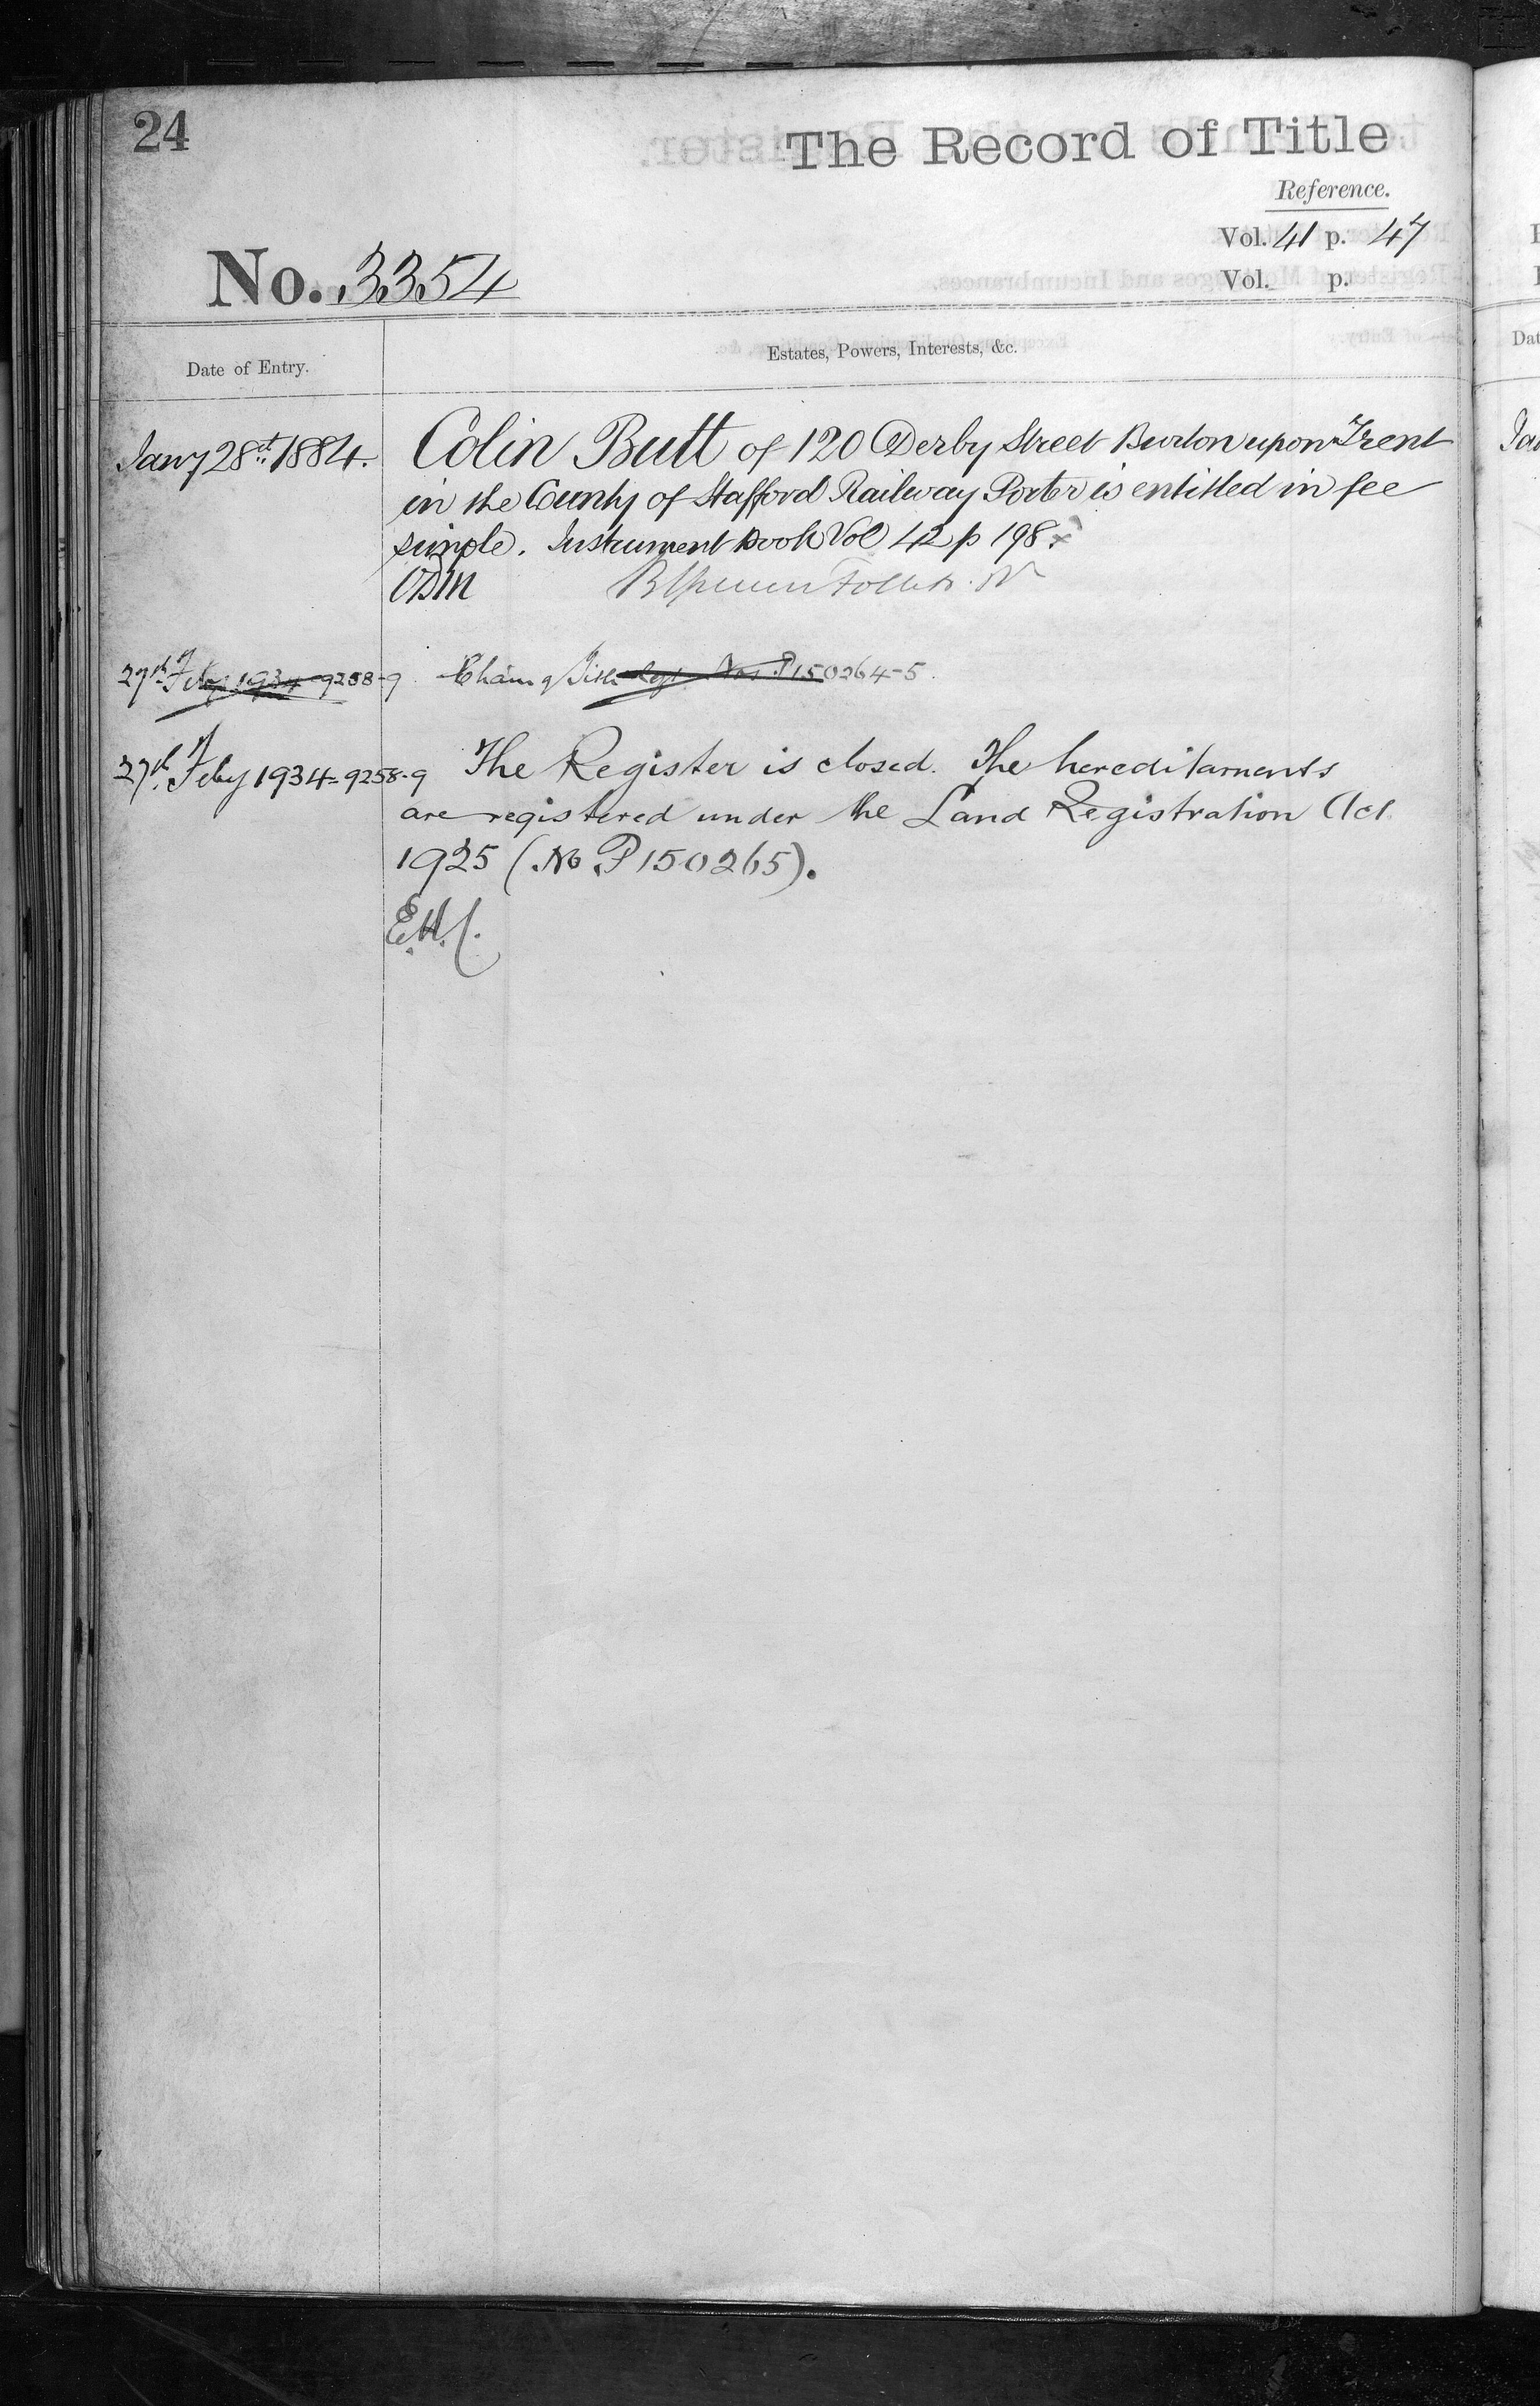 24
The Record of Title
Reference.
Vol. 41 p. 47
No. 3354
Vol. p.
Date of Entry.
Estates, Powers, Interests, &c.
Jany 28th 1884.
Colin Butt of 120 Derby Street Burton upon Trent
in the County of Stafford Railway Porter is entitled in fee
simple. Instrument Book Vol 42 p 198.
27th Feby 1934-9258-9 Title Nos P150264-5.
27th Feby 1934-9258-9 The Register is closed. The hereditaments
are registered under the Land Registration Act
1925 (No P150265).